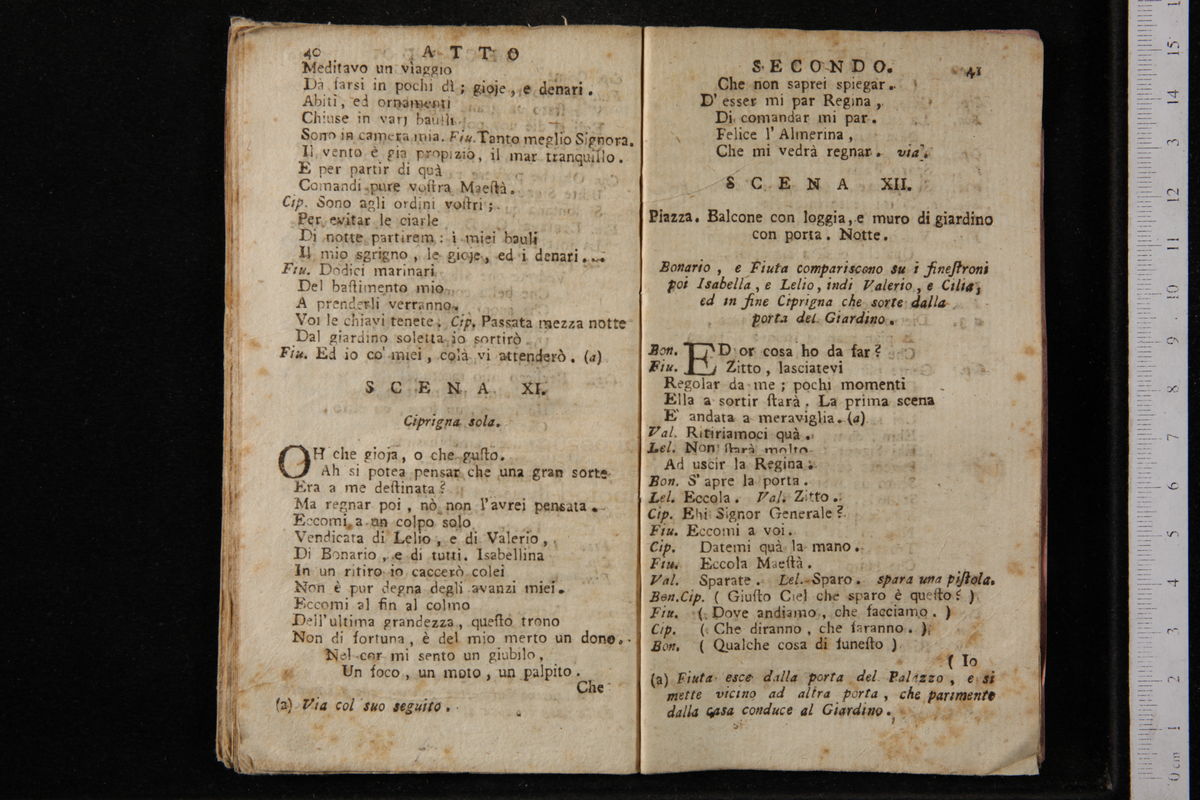 40 ATTO
Meditavo un viaggio
Da farsi in pochi dì ; gioje , e denari .
Abiti , ed ornamenti
Chiuse in varj baulli
Sono in camera mia. Fiu. Tanto meglio Signora.
Il vento è gia propizio, il mar tranquillo .
E per partir di quà
Comandi pure voſtra Maeſtà .
Cip. Sono agli ordini voſtri ;
Per evitar le ciarle
Di notte partirem : i miei bauli
Il mio sgrigno , le gioje , ed i denari ...
Fiu. Dodici marinari
Del baſtimento mio
A prenderli verranno.
Voi le chiavi tenete . Cip. Passata mezza notte
Dal giardino soletta io sortirò
Fiu. Ed io co' miei , colà vi attenderò . (a)
SCENA XI.
Ciprigna sola.
OH che gioja , o che guſto.
Ah si potea pensar che una gran sorte
Era a me deſtinata ?
Ma regnar poi , nò non l'avrei pensata .
Eccomi a un colpo solo
Vendicata di Lelio , e di Valerio ,
Di Bonario , e di tutti. Isabellina
In un ritiro io caccerò colei
Non è pur degna degli avanzi miei.
Eccomi al fin al colmo
Dell'ultima grandezza , queſto trono
Non di fortuna , è del mio merto un dono.
Nel cor mi sento un giubilo ,
Un foco , un moto , un palpito .
Che
(a) Via col suo seguito .
SECONDO. 41
Che non saprei spiegar .
D' esser mi par Regina ,
Di comandar mi par .
Felice l' Almerina ,
Che mi vedrà regnar . via .
SCENA XII.
Piazza . Balcone con loggia , e muro di giardino
con porta . Notte .
Bonario , e Fiuta compariscono su i fineſtroni
poi Isabella , e Lelio , indi Valerio , e Cilia ,
ed in fine Ciprigna che sorte dalla
porta del Giardino .
Bon. ED or cosa ho da far ?
Fiu. Zitto , lasciatevi
Regolar da me ; pochi momenti
Ella a sortir ſtarà . La prima scena
E' andata a meraviglia . (a)
Val. Ritiriamoci quà .
Lel. Non ſtarà molto
Ad uscir la Regina .
Bon. S' apre la porta .
Lel. Eccola . Val. Zitto .
Cip. Ehi Signor Generale ?
Fiu. Eccomi a voi .
Cip. Datemi quà la mano .
Fiu. Eccola Maeſtà .
Val. Sparate . Lel. Sparo . spara una piſtola.
Bon.Cip. ( Giuſto Ciel che sparo è queſto ? )
Fiu. ( Dove andiamo , che facciamo . )
Cip. ( Che diranno , che faranno . )
Bon. ( Qualche cosa di funeſto )
( Io
(a) Fiuta esce dalla porta del Palazzo , e si
mette vicino ad altra porta , che parimente
dalla casa conduce al Giardino .
0 cm 1 2 3 4 5 6 7 8 9 10 11 12 13 14 15